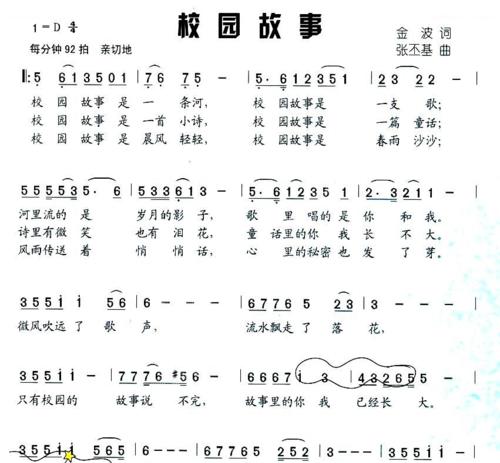 校园故事
1=D 4/4
金波 词
每分钟92拍 亲切地
张丕基 曲
‖: 5 6 1 3 5 0 1 | 7 6 7 5 - | 5· 6 1 2 3 5 1 | 2 - - - |
校园故事是一条河， 校园故事是一支歌；
校园故事是一首小诗， 校园故事是一篇童话；
校园故事是晨风轻轻， 校园故事是春雨沙沙；
5 5 5 5 3 5· 6 | 5 5 3 6 1 3 - | 5· 6 1 2 3 3 1 | 2· 3 2 1 - |
河里流的是岁月的影子， 歌里唱的是你和我。
诗里有微笑也有泪花， 童话里的你我长不大。
风雨传送着悄悄话， 心里的秘密也发了芽。
3 5 5 1 1 5 6 | 6 - - - | 6 7 7 6 5 2 3 | 3 - - - |
微风吹远了歌声， 流水飘走了落花，
3 5 5 1 1 - | 7 7 7 6 #5 6 - | 6 6 6 7 1 3 | 4 3 2 6 5 5 - |
只有校园的故事说不完， 故事里的你我已经长大。
3 5 5 1 1 5 6 5 | 3 - - - | 6 7 7 6 5 2 5 2 | 3 - - - |